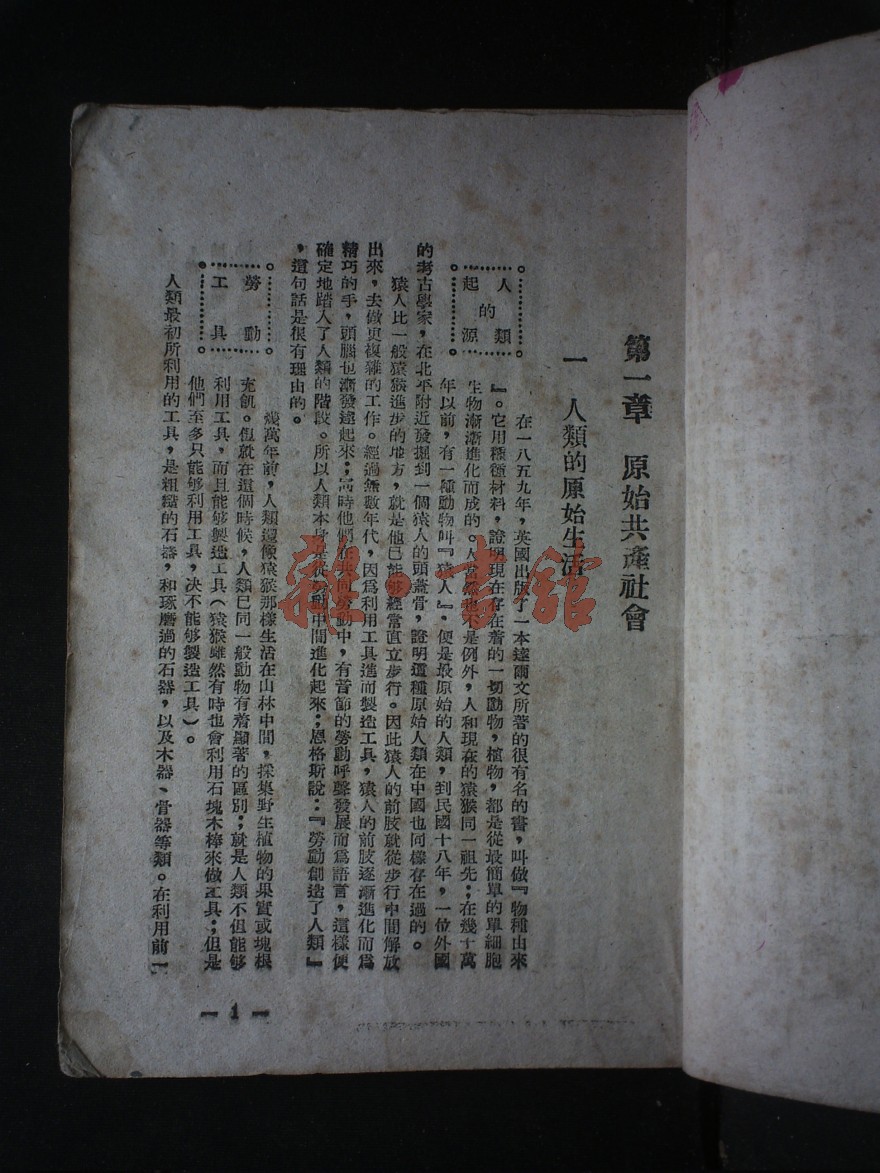 第一章　原始共產社會
一　人類的原始生活
人類的起源
在一八五九年，英國出版了一本達爾文所著的很有名的書，叫做『物種由來
』。它用種種材料，證明現在存在着的一切動物，植物，都是從最簡單的單細胞
生物漸漸進化而成的。人當然也不是例外，人和現在的猿猴同一祖先；在幾十萬
年以前，有一種動物叫『猿人』，便是最原始的人類，到民國十八年，一位外國
的考古學家，在北平附近發掘到一個猿人的頭蓋骨，證明這種原始人類在中國也同樣存在過的。
猿人比一般猿猴進步的地方，就是他已能够經常直立步行。因此猿人的前肢就從步行中間解放
出來，去做更複雜的工作。經過無數年代，因爲利用工具進而製造工具，猿人的前肢逐漸進化而爲
精巧的手，頭腦也漸發達起來；同時他們在共同勞動中，有音節的勞動呼聲發展而爲語言，這樣便
確定地踏入了人類的階段。所以人類本身是從勞動中間進化起來；恩格斯說：『勞動創造了人類』
，這句話是很有理由的。
勞動工具
幾萬年前，人類還像猿猴那樣生活在山林中間，採集野生植物的果實或塊根
充飢。但就在這個時候，人類已同一般動物有着顯著的區別；就是人類不但能够
利用工具，而且能够製造工具（猿猴雖然有時也會利用石塊木棒來做工具；但是
他們至多只能够利用工具，决不能够製造工具）。
人類最初所利用的工具，是粗糙的石器，和琢磨過的石器，以及木器、骨器等類。在利用前一
— 1 —
雜·書館